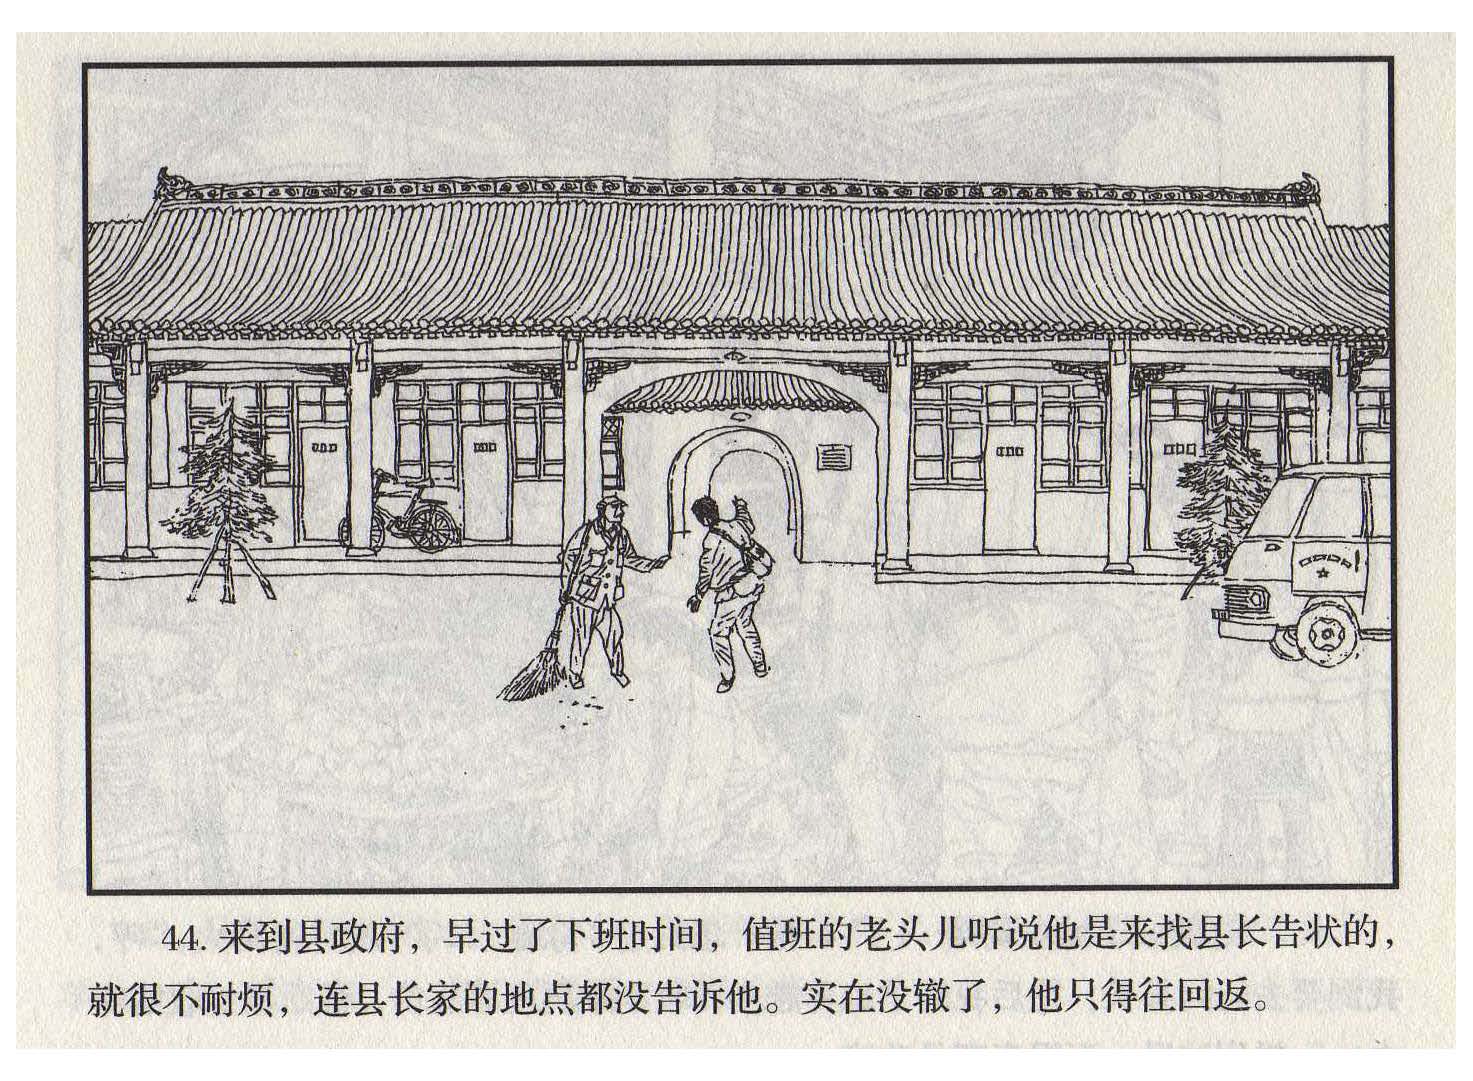 44. 来到县政府，早过了下班时间，值班的老头儿听说他是来找县长告状的，
就很不耐烦，连县长家的地点都没告诉他。实在没辙了，他只得往回返。